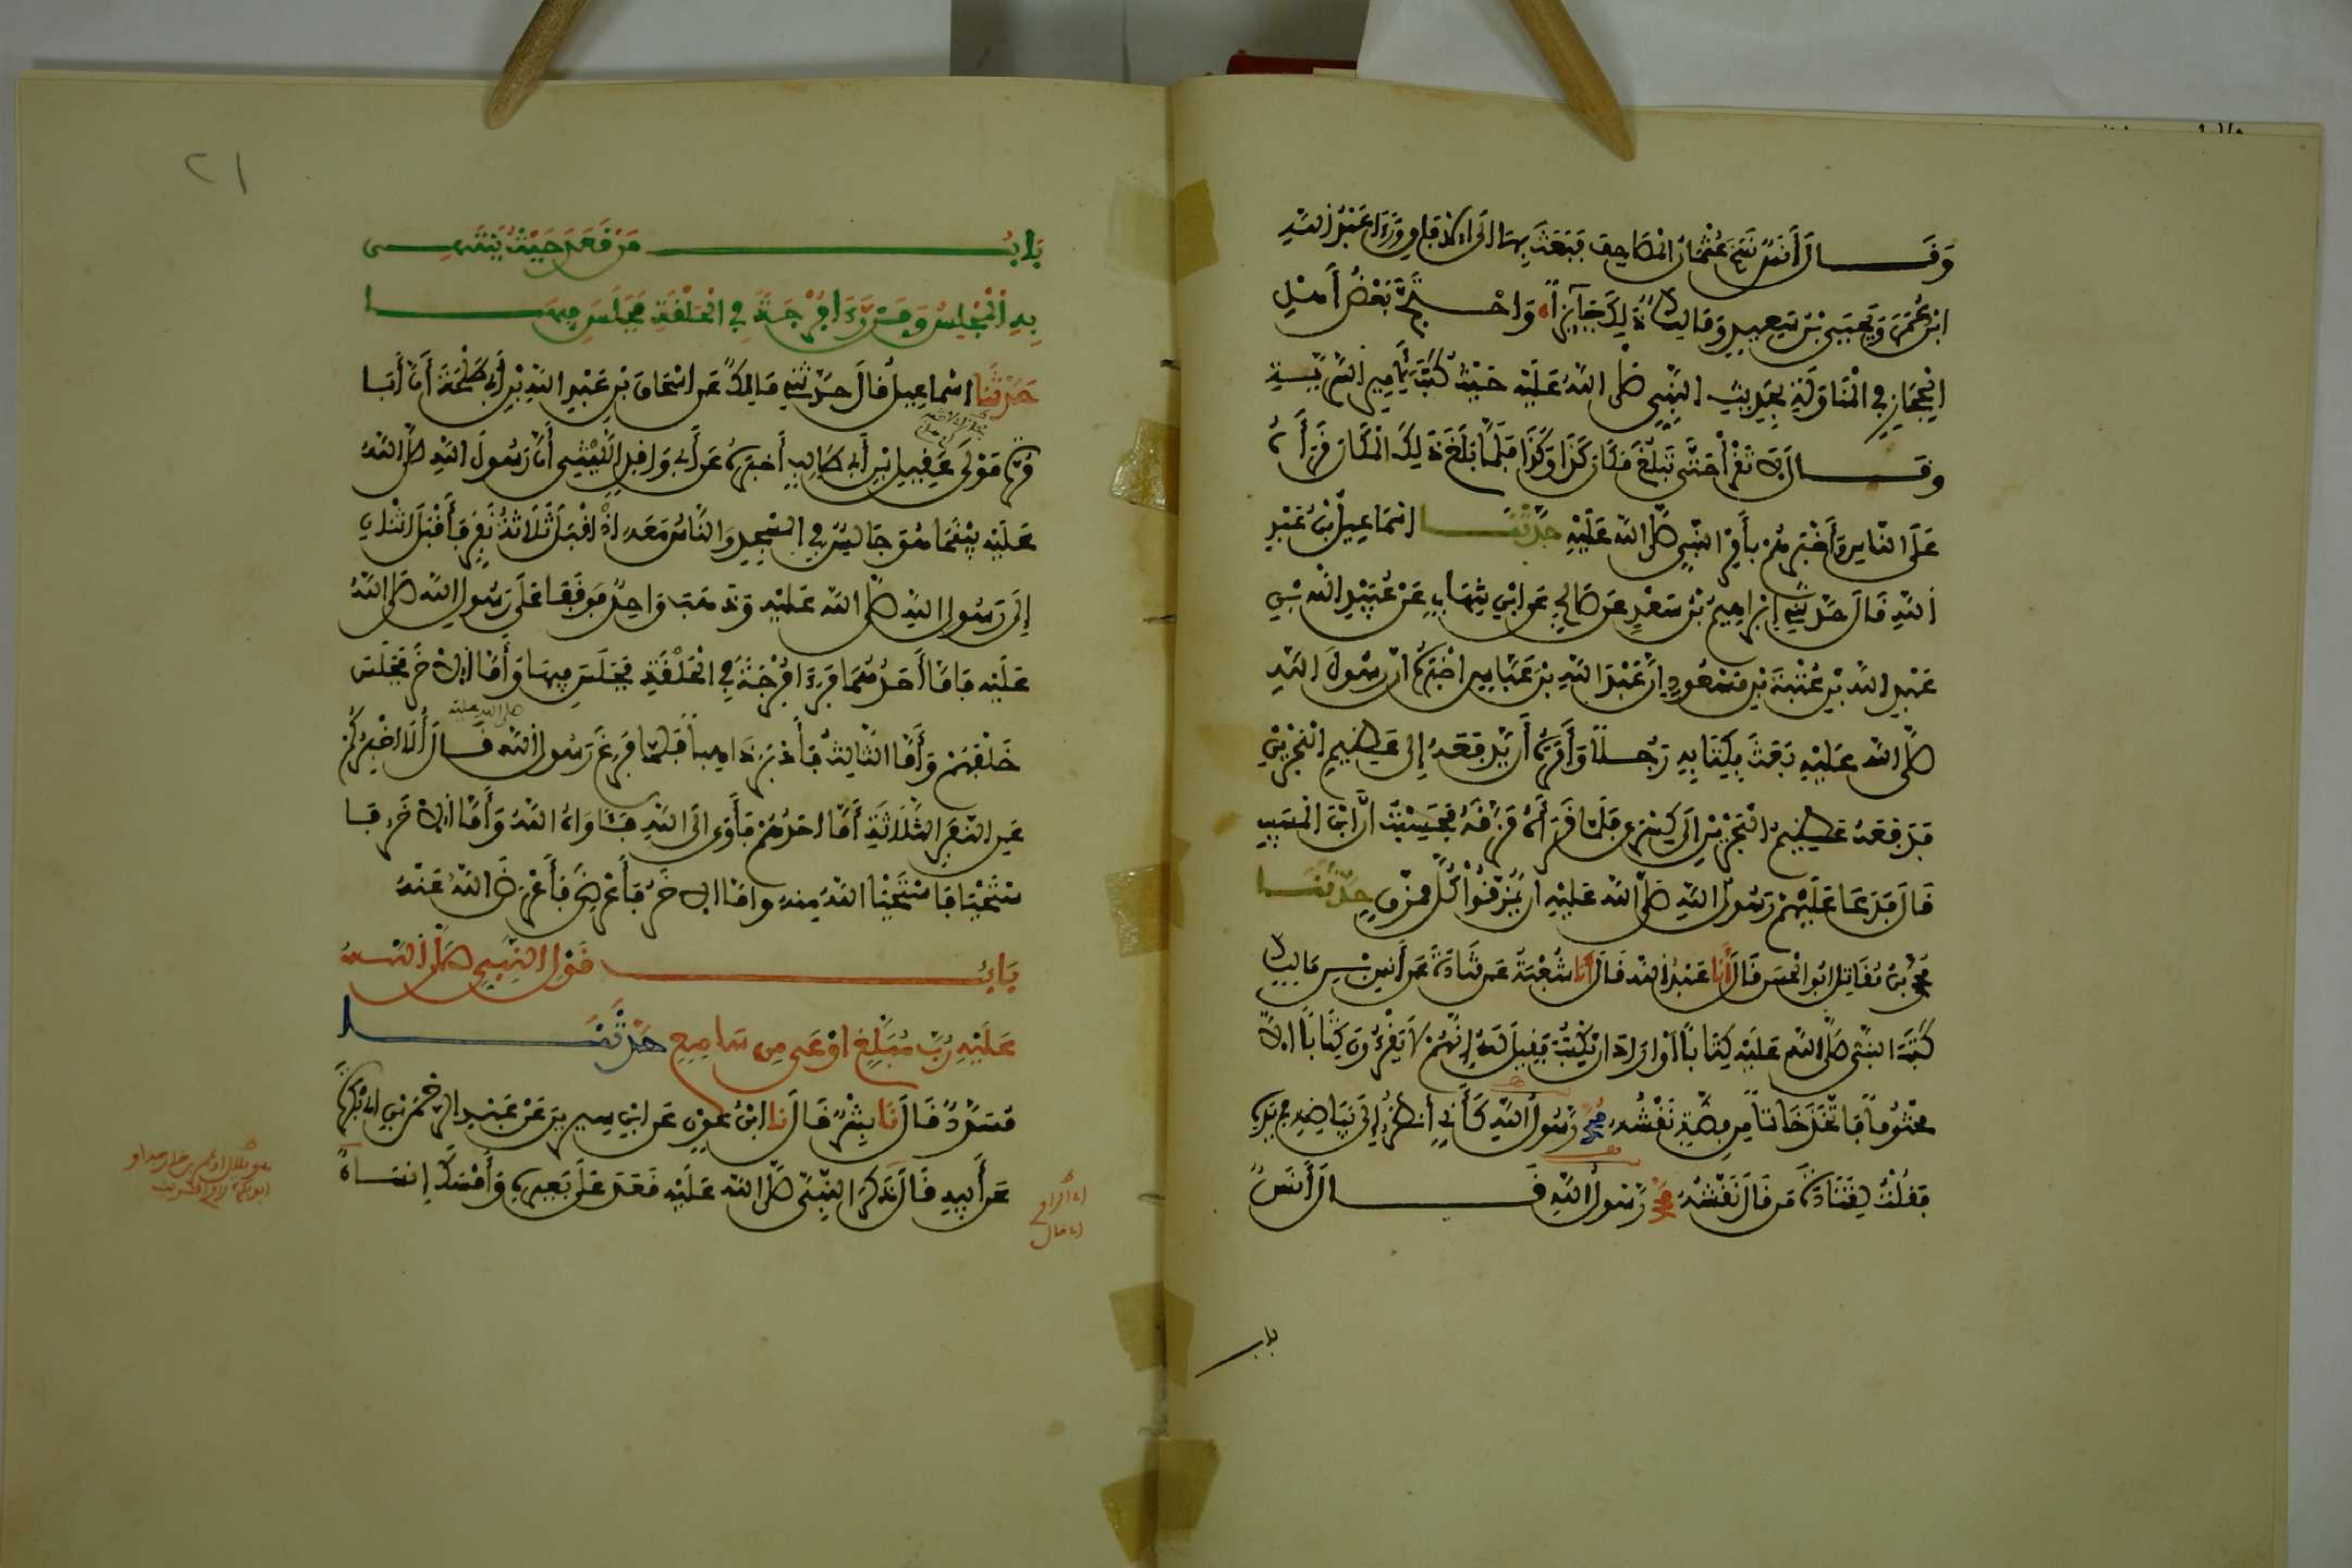 وَقَالَ أَنَسٌ نَسَخَ عُثْمَانُ الْمَصَاحِفَ فَبَعَثَ بِهَا إِلَى الْآفَاقِ وَرَءَا عَبْدُ اللَّهِ
ابْنُ عُمَرَ وَيَحْيَى بْنُ سَعِيدٍ وَمَالِكٌ ذَلِكَ جَائِزاً وَاحْتَجَّ بَعْضُ أَهْلِ
الْحِجَازِ فِي الْمُنَاوَلَةِ بِحَدِيثِ النَّبِيِّ صَلَّى اللَّهُ عَلَيْهِ حَيْثُ كَتَبَ لِأَمِيرِ السَّرِيَّةِ
وَقَالَ لَا تَقْرَأْ حَتَّى تَبْلُغَ مَكَانَ كَذَا وَكَذَا فَلَمَّا بَلَغَ ذَلِكَ الْمَكَانَ قَرَأَهُ
عَلَى النَّاسِ وَأَخْبَرَهُمْ بِأَمْرِ النَّبِيِّ صَلَّى اللَّهُ عَلَيْهِ حَدَّثَنَا إِسْمَاعِيلُ بْنُ عَبْدِ
اللَّهِ قَالَ حَدَّثَنِي إِبْرَاهِيمُ بْنُ سَعْدٍ عَنْ صَالِحٍ عَنِ ابْنِ شِهَابٍ عَنْ عُبَيْدِ اللَّهِ بْنِ
عَبْدِ اللَّهِ بْنِ عُتْبَةَ بْنِ مَسْعُودٍ أَنَّ عَبْدَ اللَّهِ بْنَ عَبَّاسٍ أَخْبَرَهُ أَنَّ رَسُولَ اللَّهِ
صَلَّى اللَّهُ عَلَيْهِ بَعَثَ بِكِتَابِهِ رَجُلاً وَأَمَرَهُ أَنْ يَدْفَعَهُ إِلَى عَظِيمِ الْبَحْرَيْنِ
فَدَفَعَهُ عَظِيمُ الْبَحْرَيْنِ إِلَى كِسْرَى فَلَمَّا قَرَأَهُ مَزَّقَهُ فَحَسِبْتُ أَنَّ ابْنَ الْمُسَيِّبِ
قَالَ فَدَعَا عَلَيْهِمْ رَسُولُ اللَّهِ صَلَّى اللَّهُ عَلَيْهِ أَنْ يُمَزَّقُوا كُلَّ مُمَزَّقٍ حَدَّثَنَا
مُحَمَّدُ بْنُ مُقَاتِلٍ أَبُو الْحَسَنِ قَالَ أَنَا عَبْدُ اللَّهِ قَالَ أَنَا شُعْبَةُ عَنْ قَتَادَةَ عَنْ أَنَسِ بْنِ مَالِكٍ
كَتَبَ النَّبِيُّ صَلَّى اللَّهُ عَلَيْهِ كِتَاباً أَوْ أَرَادَ أَنْ يَكْتُبَ فَقِيلَ لَهُ إِنَّهُمْ لَا يَقْرَءُونَ كِتَاباً إِلَّا
مَخْتُوماً فَاتَّخَذَ خَاتَماً مِنْ فِضَّةٍ نَقْشُهُ مُحَمَّدٌ رَسُولُ اللَّهِ كَأَنِّي أَنْظُرُ إِلَى بَيَاضِهِ فِي يَدِهِ
فَقُلْتُ لِقَتَادَةَ مَنْ قَالَ نَقْشُهُ مُحَمَّدٌ رَسُولُ اللَّهِ قَالَ أَنَسٌ
باب
٢١
بَابُ مَنْ قَعَدَ حَيْثُ يَنْتَهِي
بِهِ الْمَجْلِسُ وَمَنْ رَءَا فُرْجَةً فِي الْحَلْقَةِ فَجَلَسَ فِيهَا
حَدَّثَنَا إِسْمَاعِيلُ قَالَ حَدَّثَنِي مَالِكٌ عَنْ إِسْحَاقَ بْنِ عَبْدِ اللَّهِ بْنِ أَبِي طَلْحَةَ أَنَّ أَبَا
مُرَّةَ مَوْلَى عَقِيلِ بْنِ أَبِي طَالِبٍ أَخْبَرَهُ عَنْ أَبِي وَاقِدٍ اللَّيْثِيِّ أَنَّ رَسُولَ اللَّهِ صَلَّى اللَّهُ
عَلَيْهِ بَيْنَمَا هُوَ جَالِسٌ فِي الْمَسْجِدِ وَالنَّاسُ مَعَهُ إِذْ أَقْبَلَ ثَلَاثَةُ نَفَرٍ فَأَقْبَلَ اثْنَانِ
إِلَى رَسُولِ اللَّهِ صَلَّى اللَّهُ عَلَيْهِ وَذَهَبَ وَاحِدٌ فَوَقَفَا عَلَى رَسُولِ اللَّهِ صَلَّى اللَّهُ
عَلَيْهِ فَأَمَّا أَحَدُهُمَا فَرَءَا فُرْجَةً فِي الْحَلْقَةِ فَجَلَسَ فِيهَا وَأَمَّا الْآخَرُ فَجَلَسَ
صلى الله عليه
خَلْفَهُمْ وَأَمَّا الثَّالِثُ فَأَدْبَرَ ذَاهِباً فَلَمَّا فَرَغَ رَسُولُ اللَّهِ قَالَ أَلَا أُخْبِرُكُمْ
عَنِ النَّفَرِ الثَّلَاثَةِ أَمَّا أَحَدُهُمْ فَأَوَى إِلَى اللَّهِ فَآوَاهُ اللَّهُ وَأَمَّا الْآخَرُ فَا
سْتَحْيَا فَاسْتَحْيَا اللَّهُ مِنْهُ وَأَمَّا الْآخَرُ فَأَعْرَضَ فَأَعْرَضَ اللَّهُ عَنْهُ
بَابُ قَوْلِ النَّبِيِّ صَلَّى اللَّهُ
عَلَيْهِ رُبَّ مُبَلَّغٍ أَوْعَى مِنْ سَامِعٍ حَدَّثَنَا
مُسَدَّدٌ قَالَ نَا بِشْرٌ قَالَ نَا ابْنُ عَوْنٍ عَنِ ابْنِ سِيرِينَ عَنْ عَبْدِ الرَّحْمَنِ بْنِ أَبِي بَكْرَةَ
عَنْ أَبِيهِ قَالَ ذَكَرَ النَّبِيَّ صَلَّى اللَّهُ عَلَيْهِ قَعَدَ عَلَى بَعِيرِهِ وَأَمْسَكَ إِنْسَانٌ